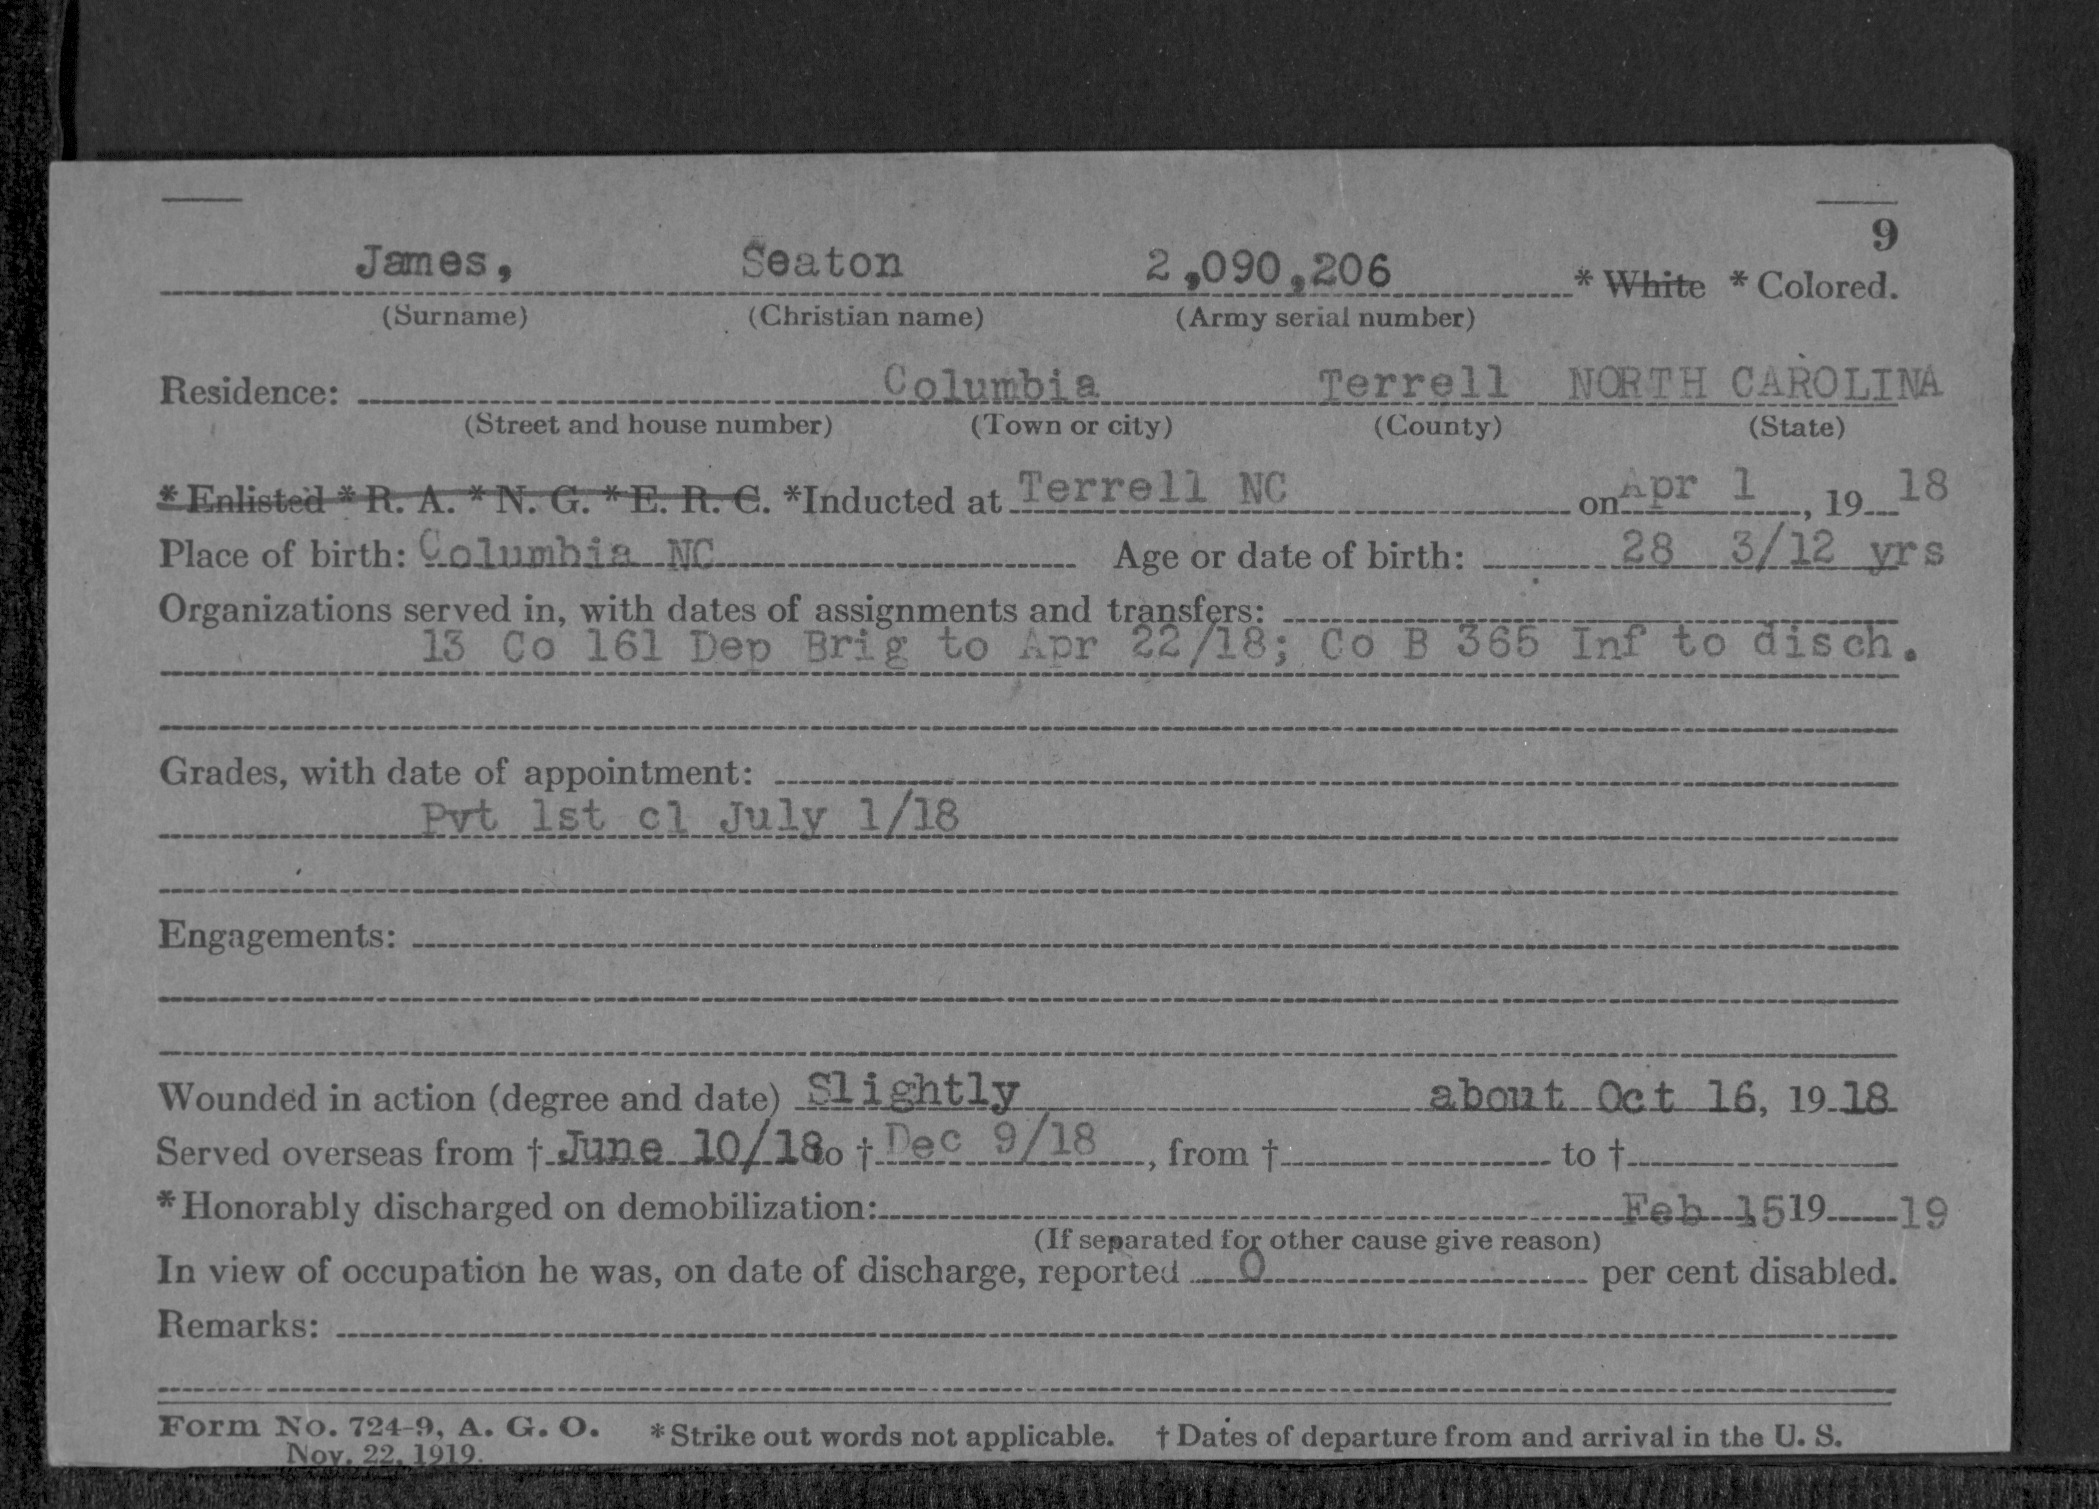 9
James, Seaton 2,090,206 * White * Colored.
(Surname) (Christian name) (Army serial number)
Residence: Columbia Terrell NORTH CAROLINA
(Street and house number) (Town or city) (County) (State)
* Enlisted * R. A. * N. G. * E. R. C. *Inducted at Terrell NC on Apr 1, 19 18
Place of birth: Columbia NC Age or date of birth: 28 3/12 yrs
Organizations served in, with dates of assignments and transfers:
13 Co 161 Dep Brig to Apr 22/18; Co B 365 Inf to disch.
Grades, with date of appointment:
Pvt 1st cl July 1/18
Engagements:
Wounded in action (degree and date) Slightly about Oct 16, 19 18
Served overseas from † June 10/18 to † Dec 9/18, from † to †
*Honorably discharged on demobilization: Feb 15 19 19
(If separated for other cause give reason)
In view of occupation he was, on date of discharge, reported 0 per cent disabled.
Remarks:
Form No. 724-9, A. G. O. *Strike out words not applicable. † Dates of departure from and arrival in the U. S.
Nov. 22, 1919.